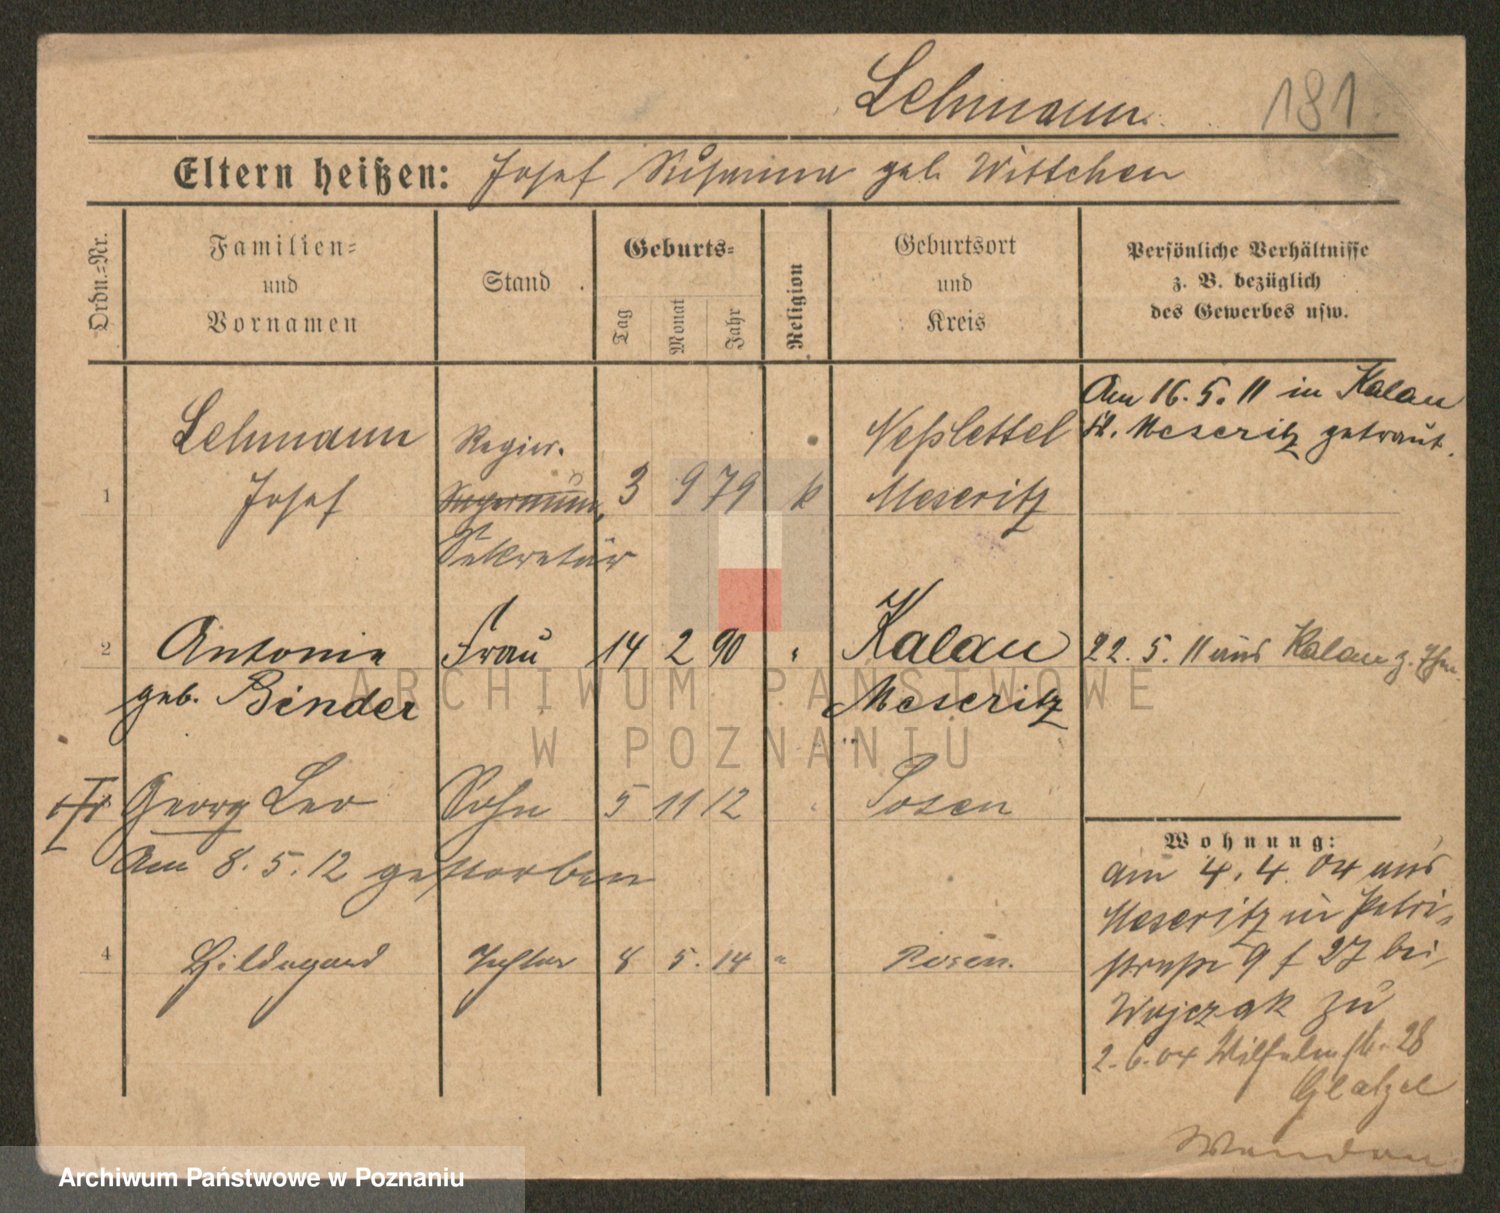 Lehmann
181
Eltern heißen: Josef Susanna geb. Wittchen
Ordn.=Nr.
Familien=
und
Vornamen
Stand
Geburts=
Tag
Monat
Jahr
Religion
Geburtsort
und
Kreis
Persönliche Verhältnisse
z. B. bezüglich
des Gewerbes usw.
1
Lehmann
Josef
Regier.
Sekretär
3 9 79 k
Neßlettel
Meseritz
Am 16. 5. 11 in Kalau
Kr. Meseritz getraut.
2
Antonie
geb. Binder
Frau
14 2 90 "
Kalau
Meseritz
22. 5. 11 aus Kalau z.
Georg Leo
Sohn
5 11 12 "
Posen
Am 8. 5. 12 gestorben
4
Hildegard
Tochter
8 5. 14 "
Posen.
Wohnung:
am 4. 4. 04 aus
Meseritz in Petri-
straße 9 f 27 bei
Wojczak zu
2. 6. 04 Wilhelmstr. 28
Glatzel
Wenden
ARCHIWUM PAŃSTWOWE
W POZNANIU
Archiwum Państwowe w Poznaniu